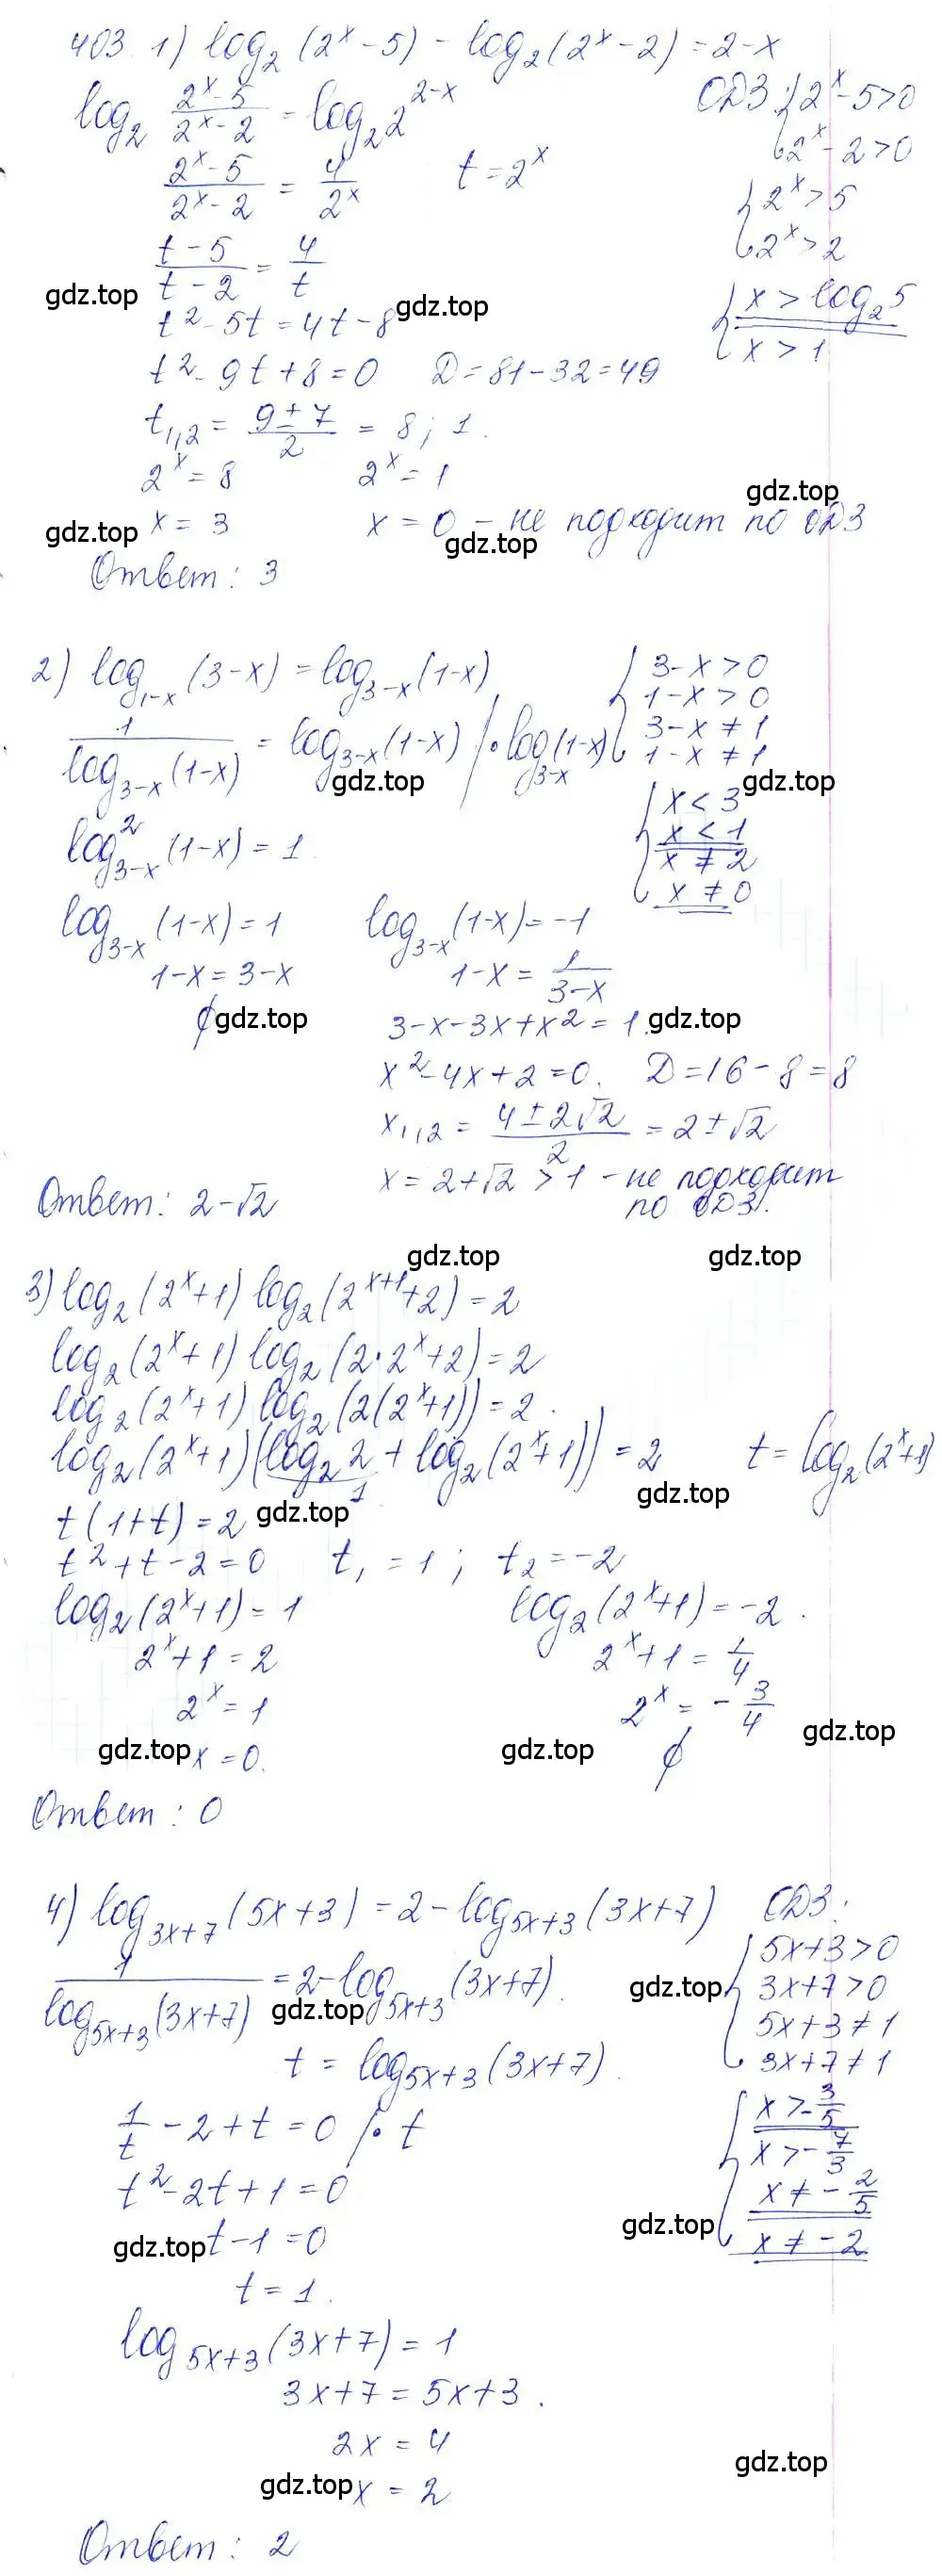 403. 1) log₂(2ˣ-5) - log₂(2ˣ-2) = 2-x
log₂ (2ˣ-5)/(2ˣ-2) = log₂2²⁻ˣ ОДЗ: { 2ˣ-5>0
2ˣ-2>0
(2ˣ-5)/(2ˣ-2) = 4/2ˣ t=2ˣ
{ 2ˣ>5
2ˣ>2
(t-5)/(t-2) = 4/t
gdz.top gdz.top
{ x > log₂5
x > 1
t²-5t=4t-8
t²-9t+8=0 D=81-32=49
t₁,₂ = (9±7)/2 = 8; 1.
2ˣ=8 2ˣ=1
gdz.top
x = 3 x = 0 - не подходит по ОДЗ
gdz.top gdz.top
Ответ: 3
2) log₁₋ₓ(3-x) = log₃₋ₓ(1-x)
{ 3-x>0
1-x>0
3-x≠1
1-x≠1
1/log₃₋ₓ(1-x) = log₃₋ₓ(1-x) /· log₃₋ₓ(1-x)
gdz.top gdz.top
{ x<3
x<1
x≠2
x≠0
log²₃₋ₓ(1-x) = 1.
log₃₋ₓ(1-x)=1 log₃₋ₓ(1-x)=-1
1-x=3-x 1-x = 1/(3-x)
∅ gdz.top 3-x-3x+x²=1. gdz.top
x²-4x+2=0. D=16-8=8
x₁,₂ = (4±2√2)/2 = 2±√2
x = 2+√2 > 1 - не подходит
по ОДЗ.
Ответ: 2-√2
gdz.top gdz.top
3) log₂(2ˣ+1) log₂(2ˣ⁺¹+2)=2
log₂(2ˣ+1) log₂(2·2ˣ+2)=2
log₂(2ˣ+1) log₂(2(2ˣ+1))=2.
log₂(2ˣ+1)(log₂2 + log₂(2ˣ+1))=2 t=log₂(2ˣ+1)
1
gdz.top gdz.top
t(1+t)=2
t²+t-2=0 t₁=1; t₂=-2
log₂(2ˣ+1)=1 log₂(2ˣ+1)=-2.
2ˣ+1=2 2ˣ+1=1/4
2ˣ=1 2ˣ=-3/4
gdz.top x=0. gdz.top ∅ gdz.top
Ответ: 0
4) log₃ₓ₊₇(5x+3)=2-log₅ₓ₊₃(3x+7) ОДЗ:
{ 5x+3>0
3x+7>0
5x+3≠1
3x+7≠1
1/log₅ₓ₊₃(3x+7) = 2-log₅ₓ₊₃(3x+7).
gdz.top gdz.top
t = log₅ₓ₊₃(3x+7).
{ x>-3/5
x>-7/3
x≠-2/5
x≠-2
1/t - 2+t=0 /· t
t²-2t+1=0
gdz.top t-1=0 gdz.top
t=1.
log₅ₓ₊₃(3x+7)=1
3x+7=5x+3.
2x=4
gdz.top x=2 gdz.top
Ответ: 2